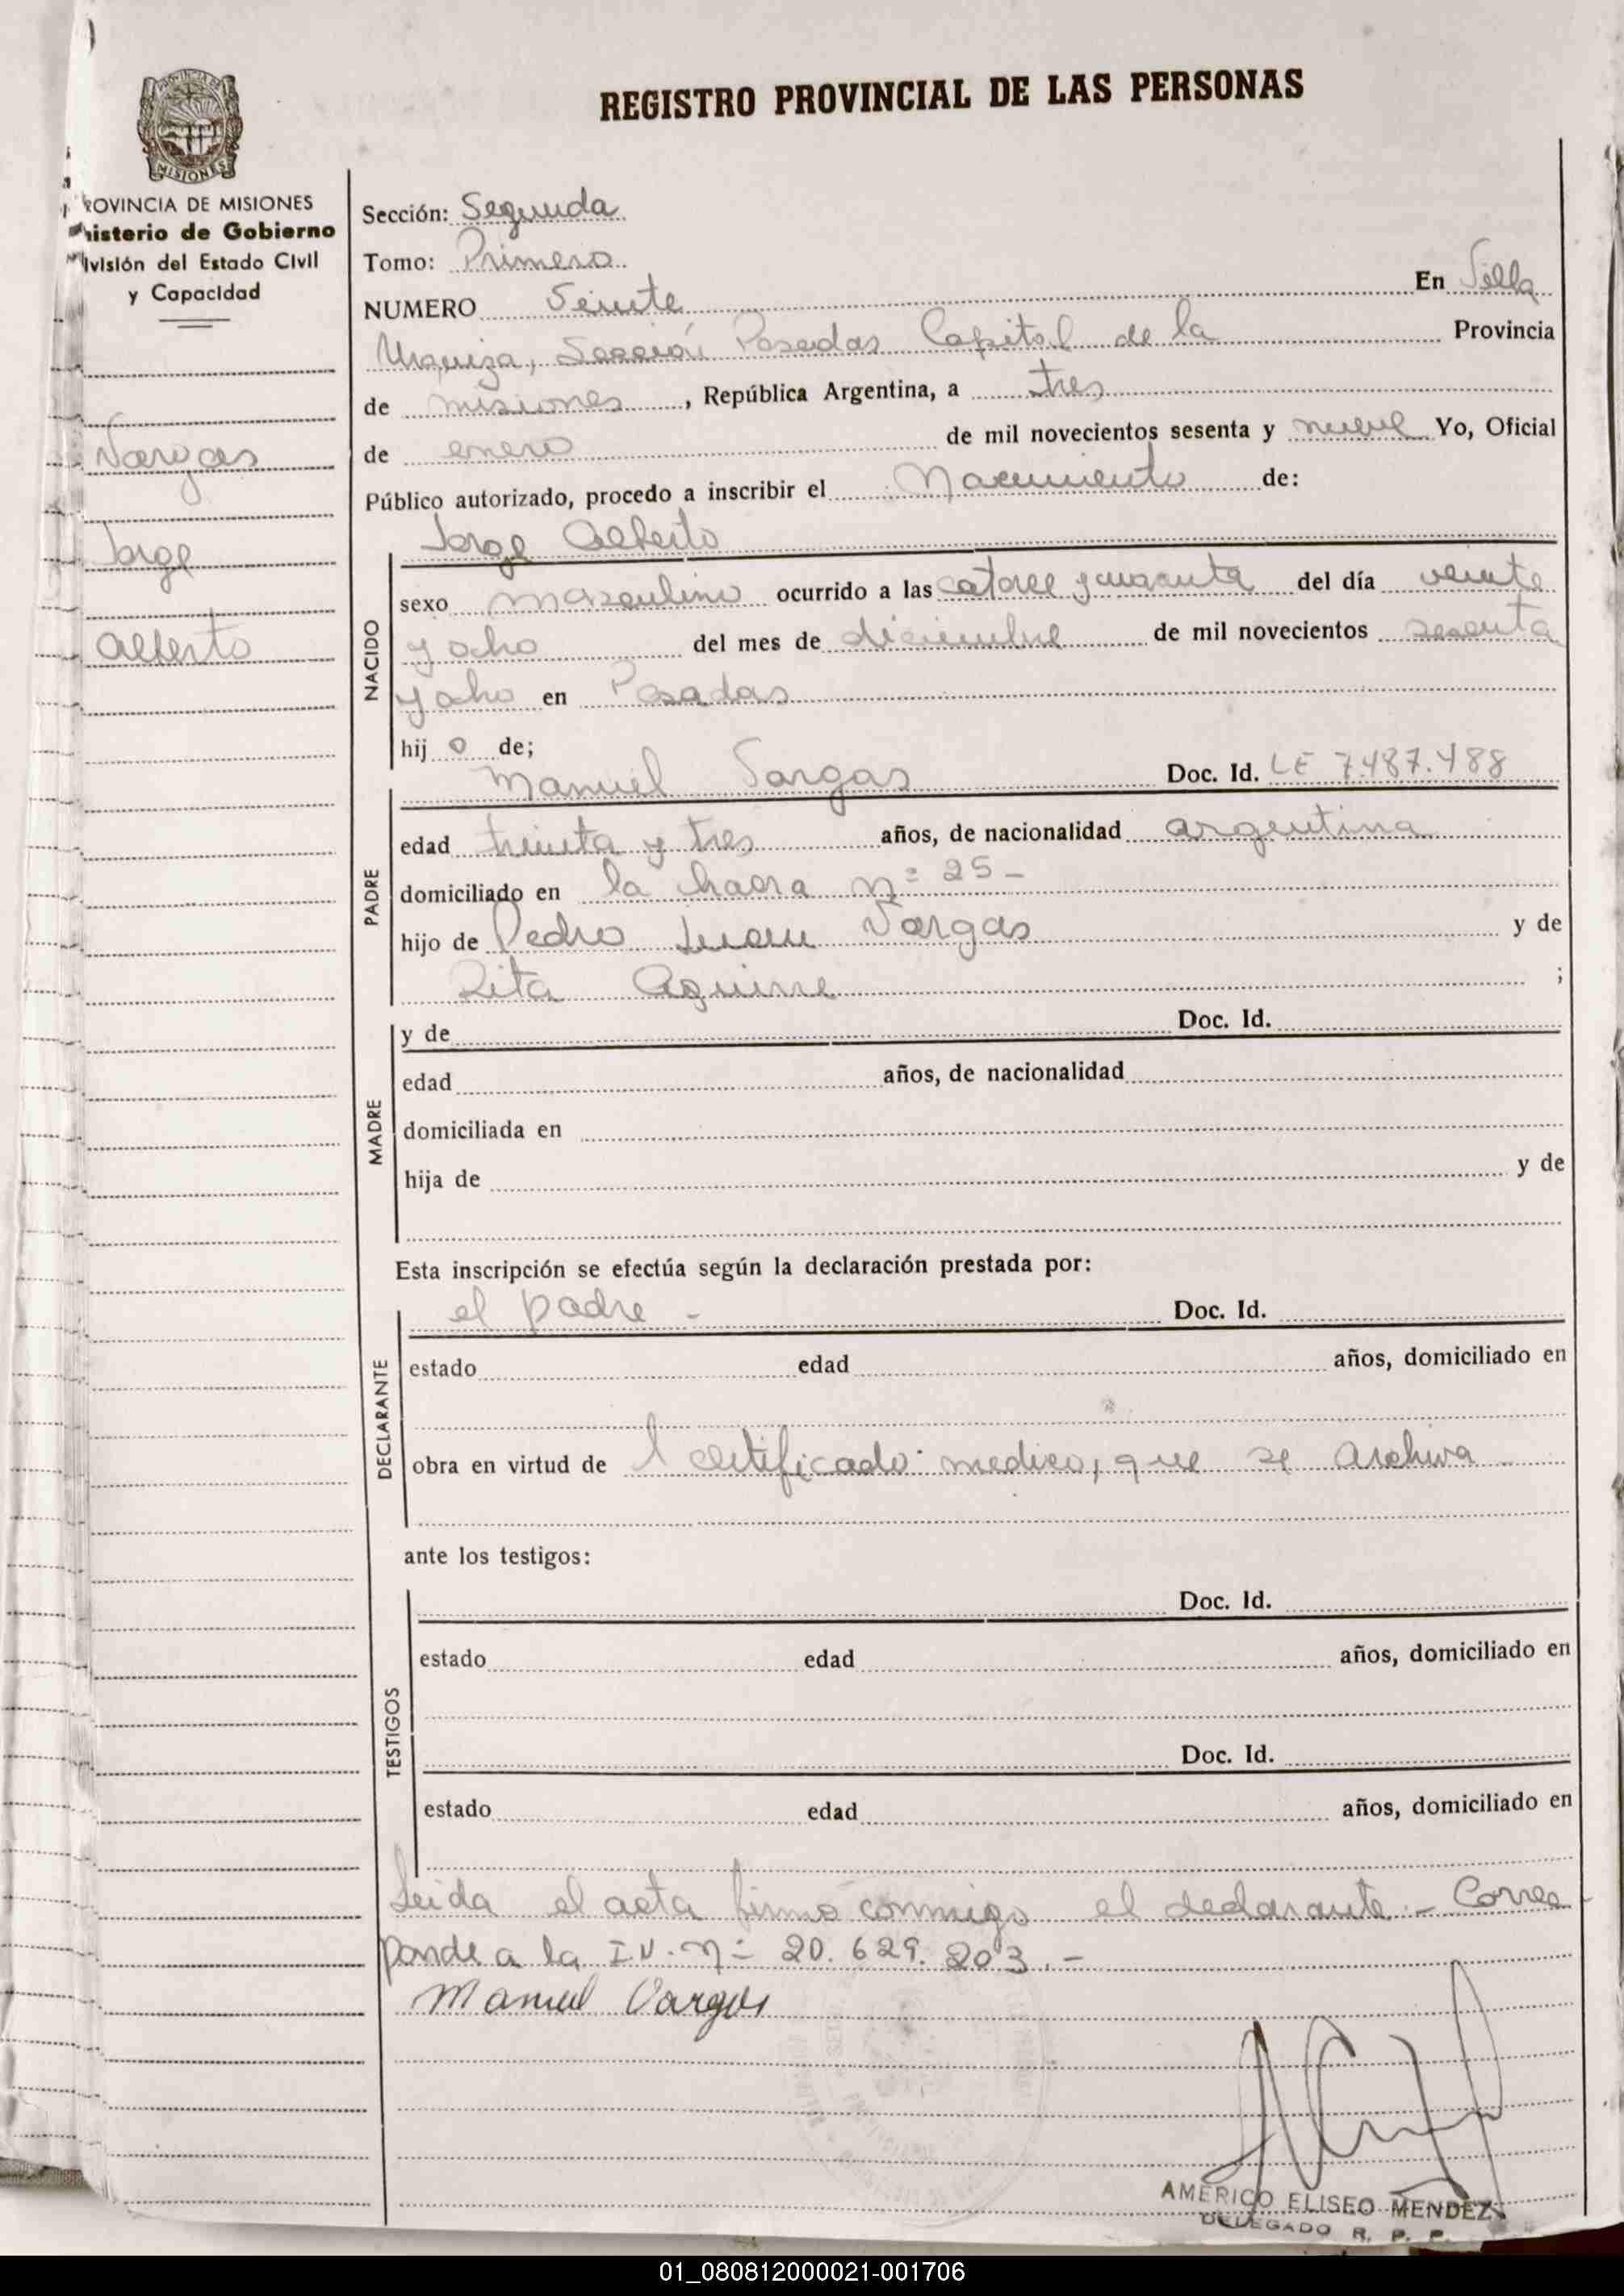 REGISTRO PROVINCIAL DE LAS PERSONAS
MISIONES
ROVINCIA DE MISIONES
nisterio de Gobierno
ivisión del Estado Civil
y Capacidad
Vargas
Jorge
Alberto
Sección: Segunda
Tomo: Primero
NUMERO Veinte En Villa
Urquiza, Sección Posadas Capital de la Provincia
de misiones, República Argentina, a tres
de enero de mil novecientos sesenta y nueve Yo, Oficial
Público autorizado, procedo a inscribir el Nacimiento de:
Jorge Alberto
NACIDO
sexo masculino ocurrido a las catorce y cuarenta del día veinte
y ocho del mes de diciembre de mil novecientos sesenta
y ocho en Posadas
hij o de;
Manuel Vargas Doc. Id. LE 7.487.488
PADRE
edad treinta y tres años, de nacionalidad argentina
domiciliado en la hacra nº 25 -
hijo de Pedro Juan Vargas y de
Rita Aguirre ;
MADRE
y de Doc. Id.
edad años, de nacionalidad
domiciliada en
hija de y de
Esta inscripción se efectúa según la declaración prestada por:
el padre - Doc. Id.
DECLARANTE
estado edad años, domiciliado en
obra en virtud de l certificado medico, que se archiva
ante los testigos:
TESTIGOS
Doc. Id.
estado edad años, domiciliado en
Doc. Id.
estado edad años, domiciliado en
Leida el acta firmó conmigo el declarante - Corres
ponde a la I.N. nº 20.629.203. -
Manuel Vargas
AMERICO ELISEO MENDEZ
DELEGADO R. P. P.
01_080812000021-001706